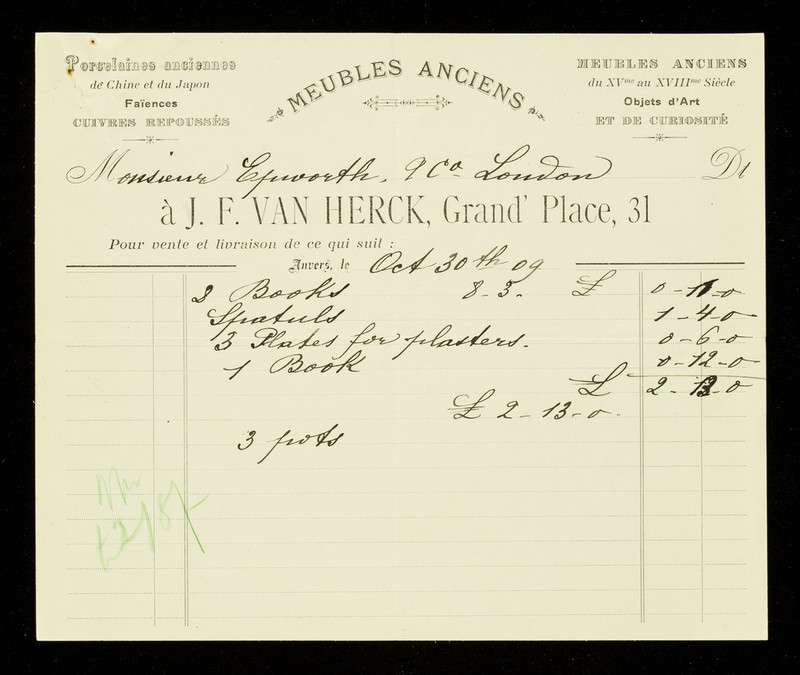 Porcelaines anciennes
de Chine et du Japon
Faïences
CUIVRES REPOUSSÉS
MEUBLES ANCIENS
MEUBLES ANCIENS
du XVme au XVIIIme Siècle
Objets d'Art
ET DE CURIOSITÉ
Monsieur Epworth, & Co London Dt
à J. F. VAN HERCK, Grand' Place, 31
Pour vente et livraison de ce qui suit :
Anvers, le Oct 30th 09
8 Books 8-3- £ 0-11-0
Spatuls 1-4-0
3 Plates for plasters. 0-6-0
1 Book 0-12-0
£ 2-13-0
£ 2-13-0.
3 pots